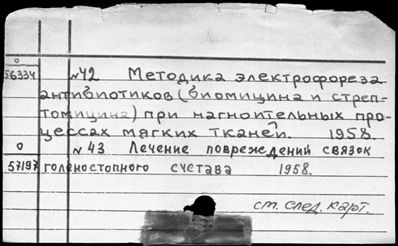 о
56334 №42 Методика электрофореза
антибиотиков (биомицина и стреп-
томицина) при нагноительных про-
цессах мягких тканей. 1958.
о №43 Лечение повреждений связок
57197 голеностопного сустава 1958.
ст. след. карт.